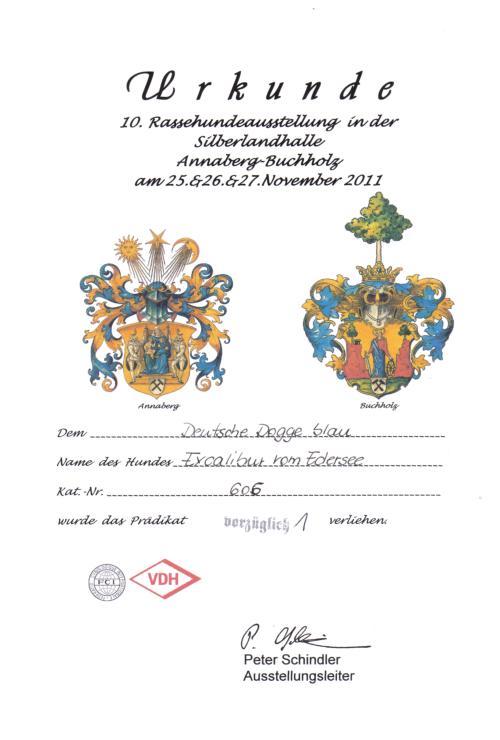 Urkunde
10. Rassehundeausstellung in der
Silberlandhalle
Annaberg-Buchholz
am 25.&26.&27.November 2011
Annaberg
Buchholz
Dem Deutsche Dogge blau
Name des Hundes Excalibur vom Edersee
Kat.-Nr. 606
wurde das Prädikat vorzüglich 1 verliehen.
FCI
VDH
Peter Schindler
Ausstellungsleiter